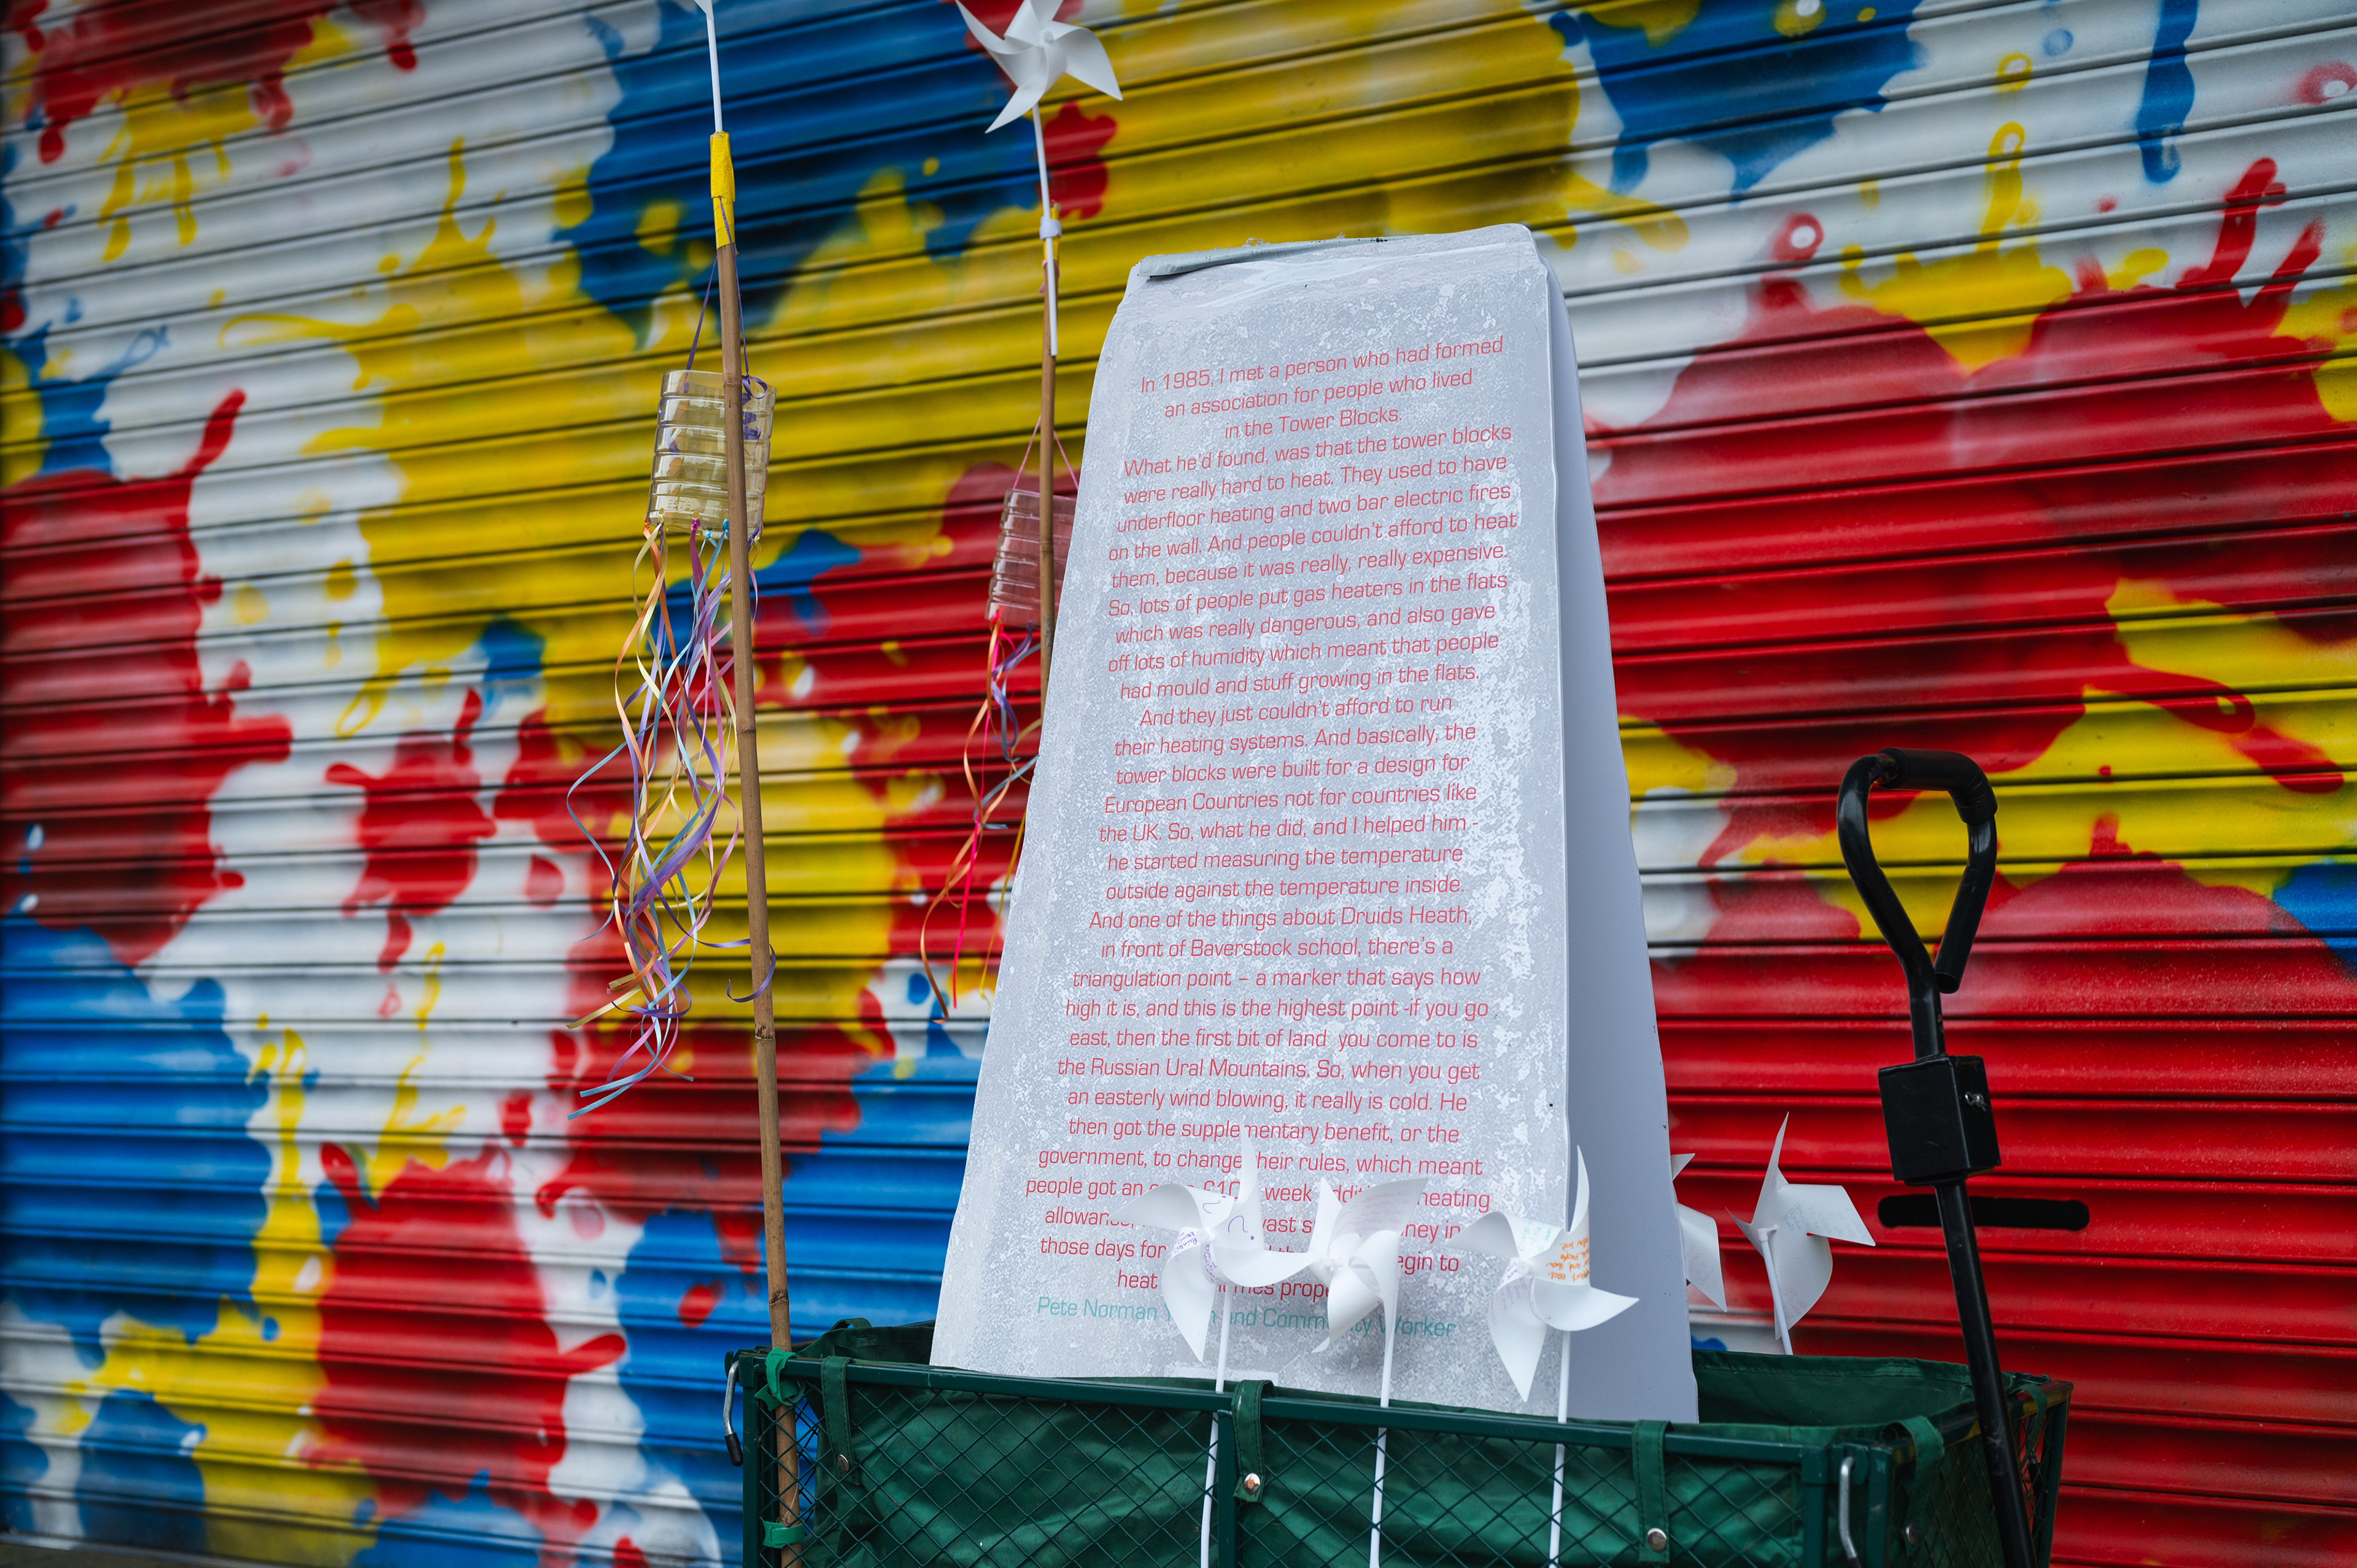 In 1985, I met a person who had formed
an association for people who lived
in the Tower Blocks.
What he'd found, was that the tower blocks
were really hard to heat. They used to have
underfloor heating and two bar electric fires
on the wall. And people couldn't afford to heat
them, because it was really, really expensive.
So, lots of people put gas heaters in the flats
which was really dangerous, and also gave
off lots of humidity which meant that people
had mould and stuff growing in the flats.
And they just couldn't afford to run
their heating systems. And basically, the
tower blocks were built for a design for
European Countries not for countries like
the UK. So, what he did, and I helped him -
he started measuring the temperature
outside against the temperature inside.
And one of the things about Druids Heath,
in front of Baverstock school, there's a
triangulation point – a marker that says how
high it is, and this is the highest point -if you go
east, then the first bit of land you come to is
the Russian Ural Mountains. So, when you get
an easterly wind blowing, it really is cold. He
then got the supplementary benefit, or the
government, to change their rules, which meant
people got an week heating
those days for to
heat
Pete Norman and Community Worker